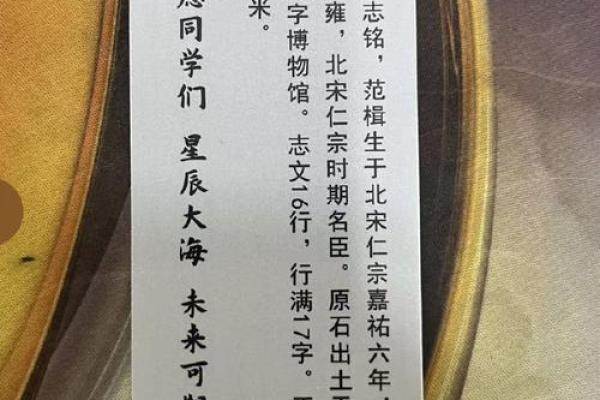 志铭，范楫生于北宋仁宗嘉祐六年，
雍，北宋仁宗时期名臣。原石出土
字博物馆。志文16行，行满17字。
米。
同学们 星辰大海 未来可